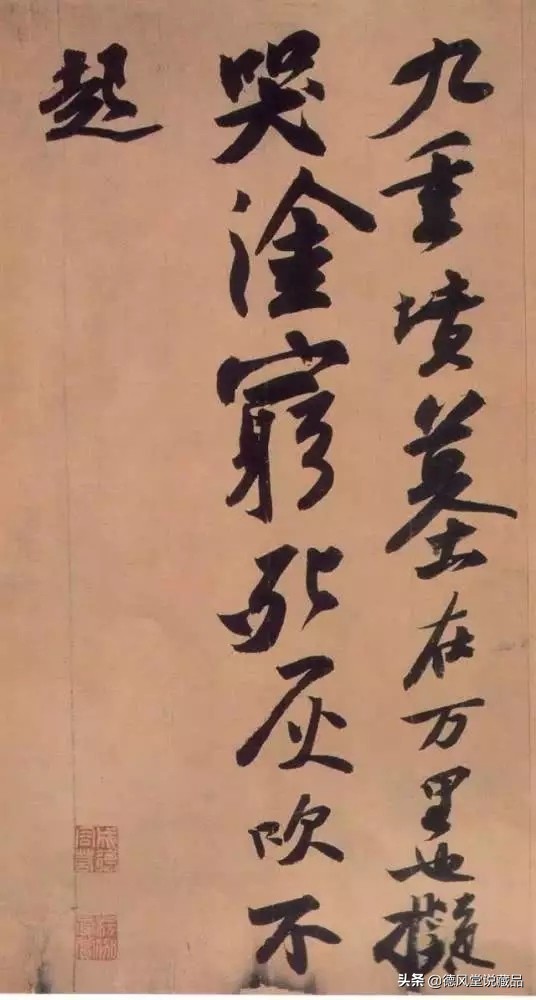 九重墳墓在万里也擬
哭塗窮死灰吹不
起
头条 @德风堂说藏品